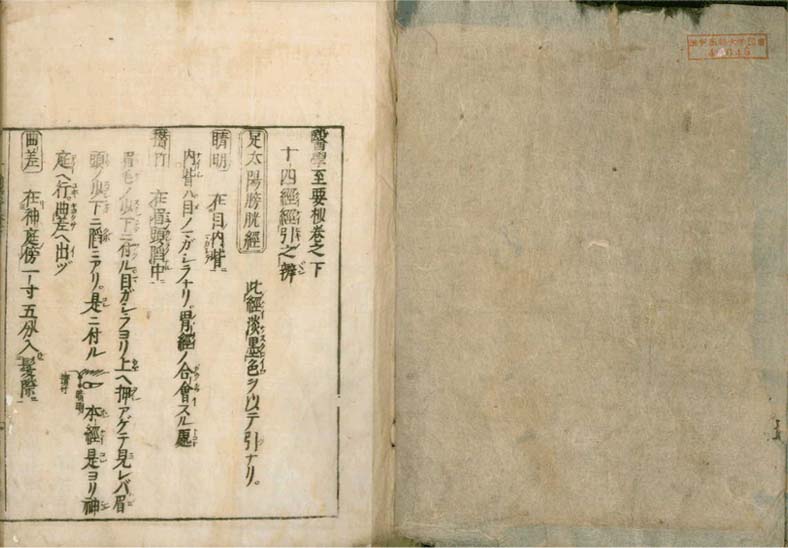 醫學至要抄巻之下
十四經經引之辨
足太陽膀胱經 此經淡墨色ヲ以テ引ナリ。
睛明 在目内眥
内眥ハ目ノマガシラナリ。胃經ノ合會スル處
攅竹 在眉頭陷中
眉毛ノ少下ニ付ル目ガシラヨリ上ヘ押アゲテ見レバ眉
頭ノ少下ニ陷ミアリ。是ニ付ル 睛明 攅竹 本經是ヨリ神
庭ヘ行。曲差ヘ出ヅ
曲差 在神庭傍一寸五分入髮際